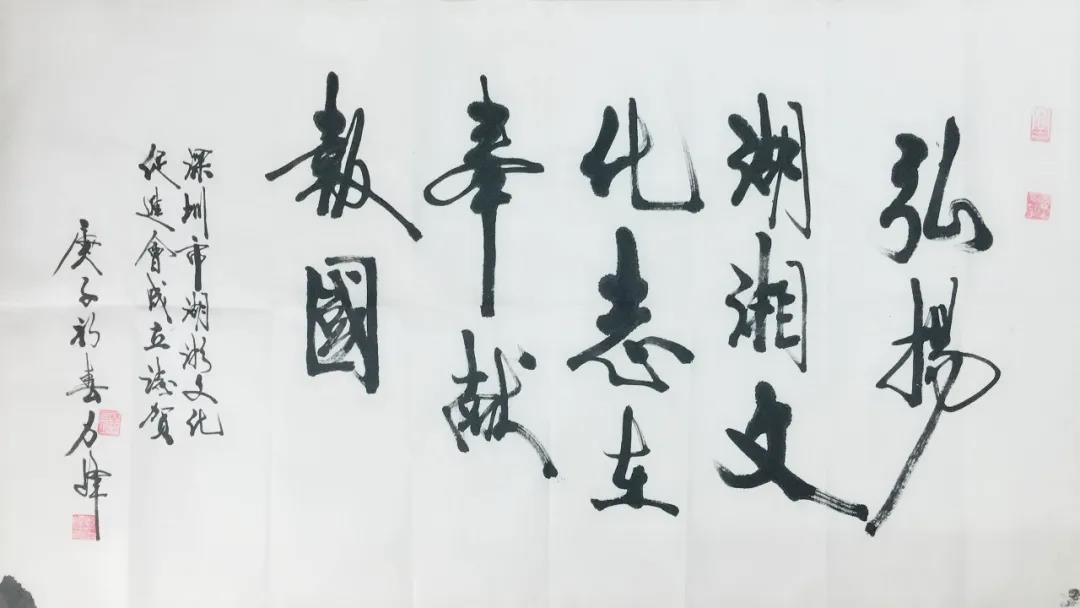 弘揚
湖湘文
化志在
奉献
報國
深圳市湖湘文化
促進會成立誌賀
庚子初春力峰